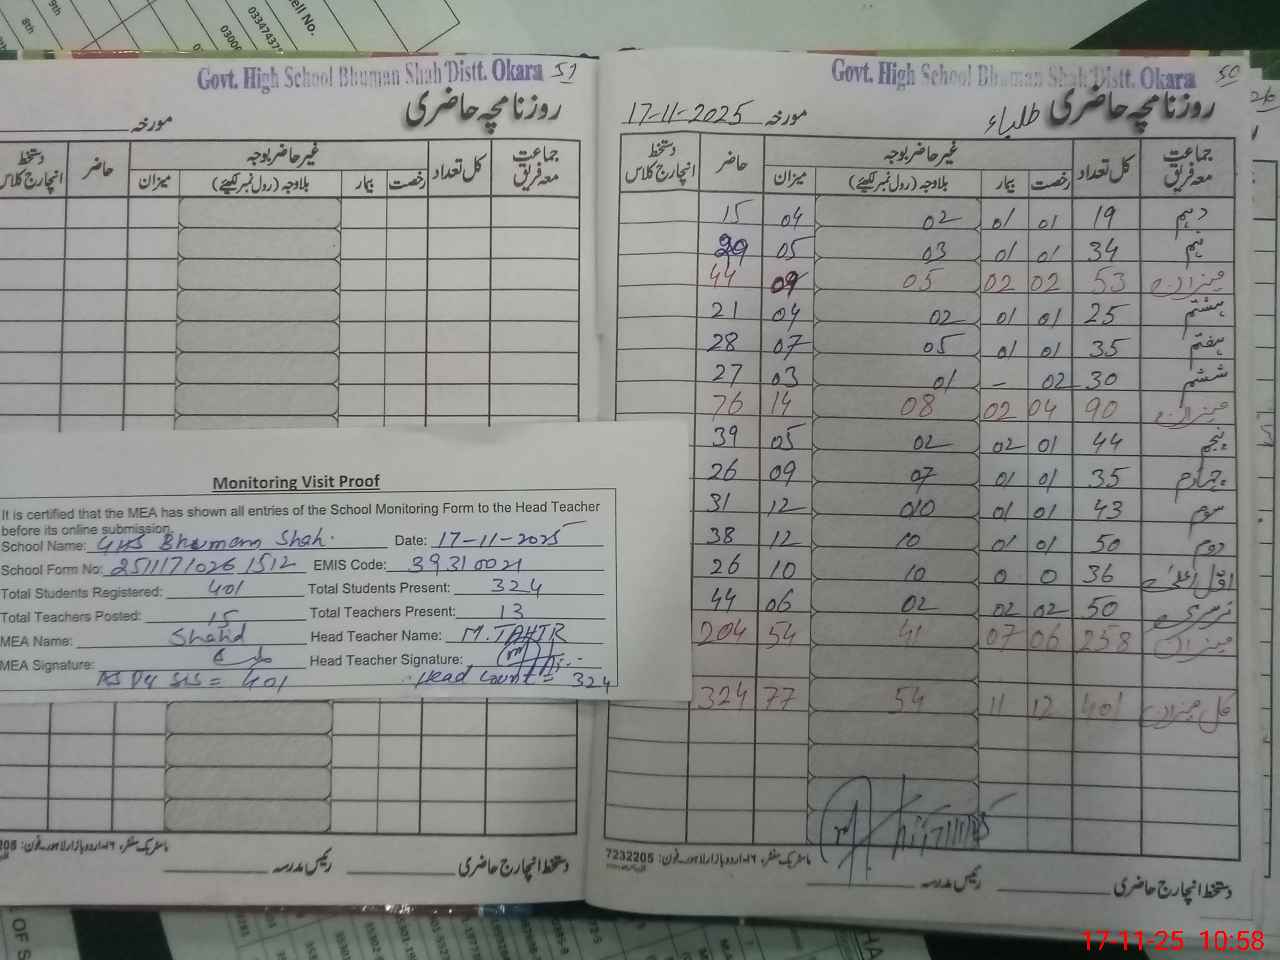 8th
9th
ell No.
0300
03347437
Govt. High School Bhuman Shah Distt. Okara 51
روزنامچہ حاضری
مورخہ
جماعت معہ فریق کل تعداد غیر حاضر بوجہ حاضر دستخط انچارج کلاس
رخصت بیمار بلاوجہ (رول نمبر لکھیئے) میزان
Monitoring Visit Proof
It is certified that the MEA has shown all entries of the School Monitoring Form to the Head Teacher
before its online submission.
School Name: GHS Bhuman Shah. Date: 17-11-2025
School Form No: 2511171026 1512 EMIS Code: 39310021
Total Students Registered: 401 Total Students Present: 324
Total Teachers Posted: 15 Total Teachers Present: 13
MEA Name: Shahid Head Teacher Name: M. TAHIR
MEA Signature: Head Teacher Signature:
As per SIS = 401 Head Count = 324
دستخط انچارج حاضری رئیس مدرسہ
Govt. High School Bhuman Shah Distt. Okara 50
روزنامچہ حاضری طلباء
مورخہ 17-11-2025
جماعت معہ فریق کل تعداد غیر حاضر بوجہ حاضر دستخط انچارج کلاس
رخصت بیمار بلاوجہ (رول نمبر لکھیئے) میزان
دہم 19 01 01 02 04 15
نہم 34 01 01 03 05 29
میزان 53 02 02 05 09 44
ہشتم 25 01 01 02 04 21
ہفتم 35 01 01 05 07 28
ششم 30 02 - 01 03 27
میزان 90 04 02 08 14 76
پنجم 44 01 02 02 05 39
چہارم 35 01 01 07 09 26
سوم 43 01 01 010 12 31
دوم 50 01 01 10 12 38
اول اعلیٰ 36 0 0 10 10 26
نرسری 50 02 02 02 06 44
میزان 258 06 07 41 54 204
کل میزان 401 12 11 54 77 324
17/11/25
7232205
دستخط انچارج حاضری رئیس مدرسہ
17-11-25 10:58